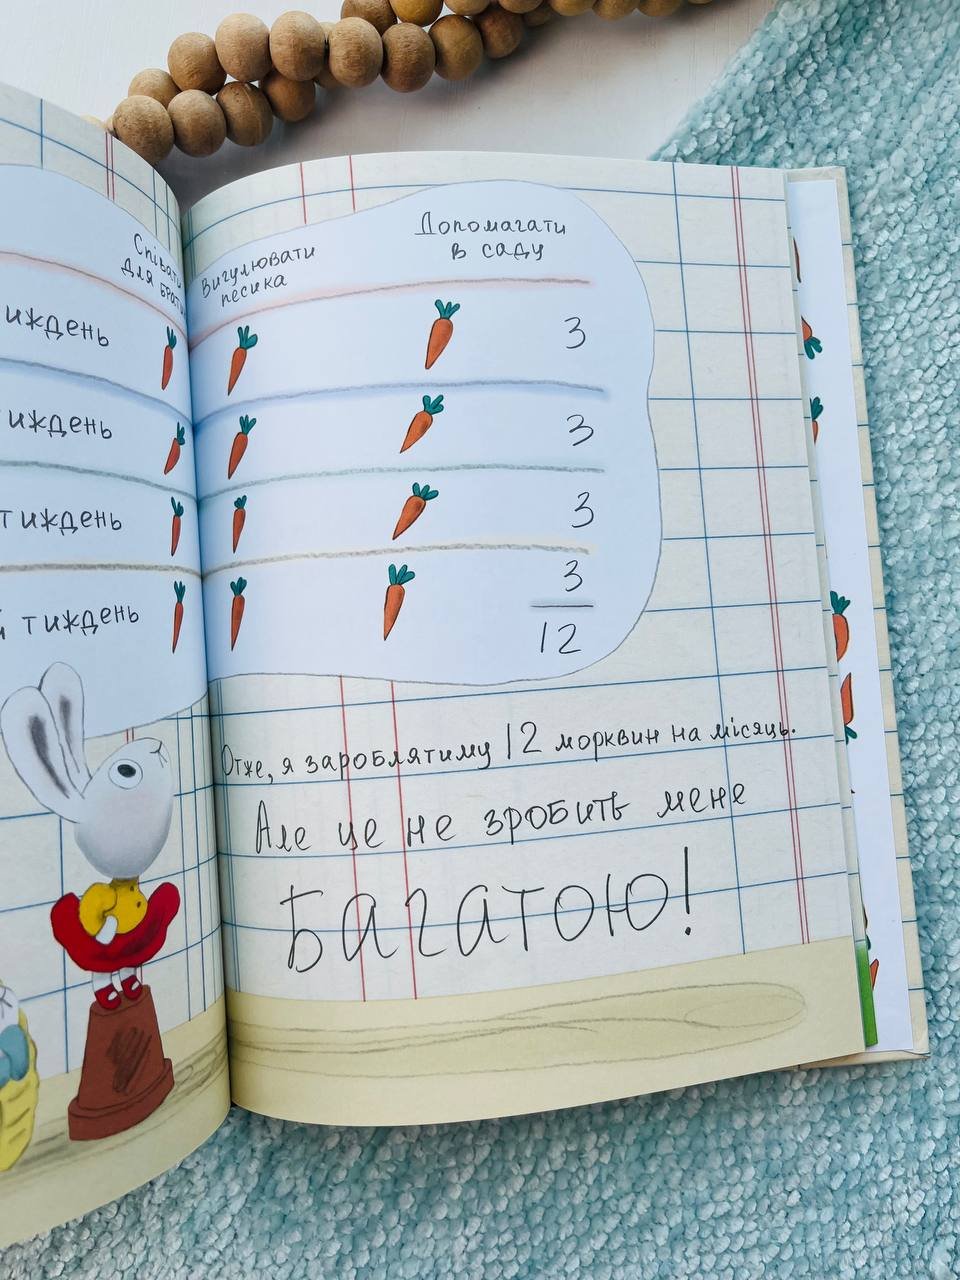 Співати
для брата
Вигулювати
песика
Допомагати
в саду
иждень 3
иждень 3
тиждень 3
й тиждень 3
12
Отже, я зароблятиму 12 морквин на місяць.
Але це не зробить мене
БАГАТОЮ!